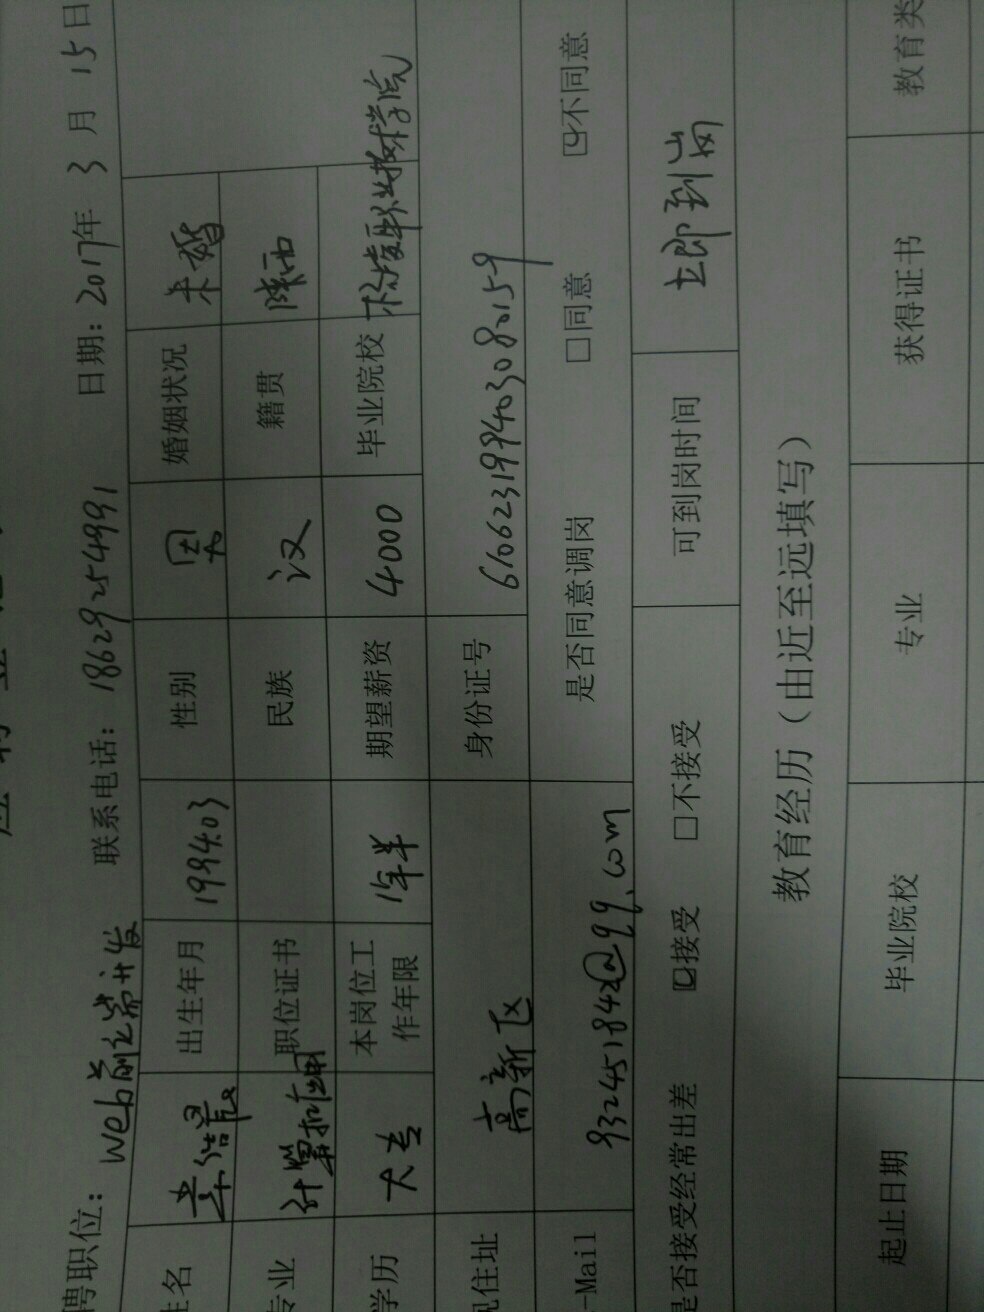 聘职位: web前端开发 联系电话: 18629254991 日期: 2017年 3 月 15 日
姓名 出生年月 1994.03 性别 男 婚姻状况 未婚
专业 计算机应用 职位证书 民族 汉 籍贯 陕西
学历 大专 本岗位工作年限 1年半 期望薪资 4000 毕业院校 杨凌职业技术学院
现住址 高新区 身份证号 610623199403080159
-Mail 932451842@qq.com 是否同意调岗 □同意 ☑不同意
是否接受经常出差 ☑接受 □不接受 可到岗时间 立即到岗
教育经历（由近至远填写）
起止日期 毕业院校 专业 获得证书 教育类